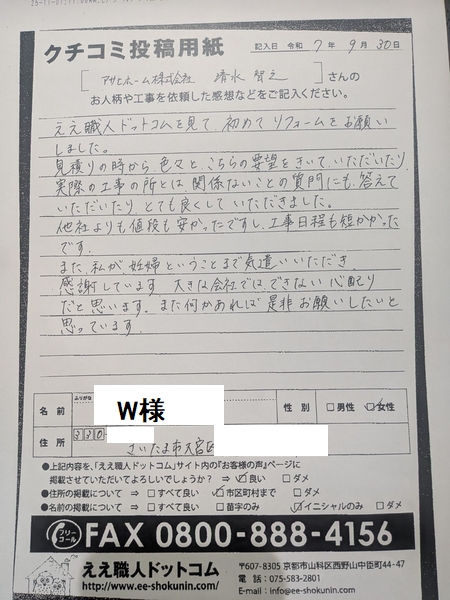 クチコミ投稿用紙
記入日 令和 7年 9月 30日
[アサヒホーム株式会社 清水 智之]さんの
お人柄や工事を依頼した感想などをご記入ください。
ええ職人ドットコムを見て、初めてリフォームをお願い
しました。
見積りの時から、色々と、こちらの要望をきいていただいたり、
実際の工事の所とは、関係ないことの質問にも、答えて
いただいたり、とても良くしていただきました。
他社よりも値段も安かったですし、工事日程も短かかった
です。
また、私が妊婦ということまで気遣いいただき、
感謝しています。大きな会社では、できない心配り
だと思います。また何かあれば是非お願いしたいと
思っています。
ふりがな
名前 W様 性別 □男性 ☑女性
住所 330
さいたま市大宮区
●上記内容を、「ええ職人ドットコム」サイト内の『お客様の声』ページに
掲載させていただいてよろしいでしょうか? ⇒ ☑良い □ダメ
●住所の掲載について ⇒ □すべて良い ☑市区町村まで □ダメ
●名前の掲載について ⇒ □すべて良い □苗字のみ ☑イニシャルのみ □ダメ
フリーコール FAX 0800-888-4156
ええ職人ドットコム
http://www.ee-shokunin.com/
〒607-8305 京都市山科区西野山中臣町44-47
電話:075-583-2801
E-mail:info@ee-shokunin.com